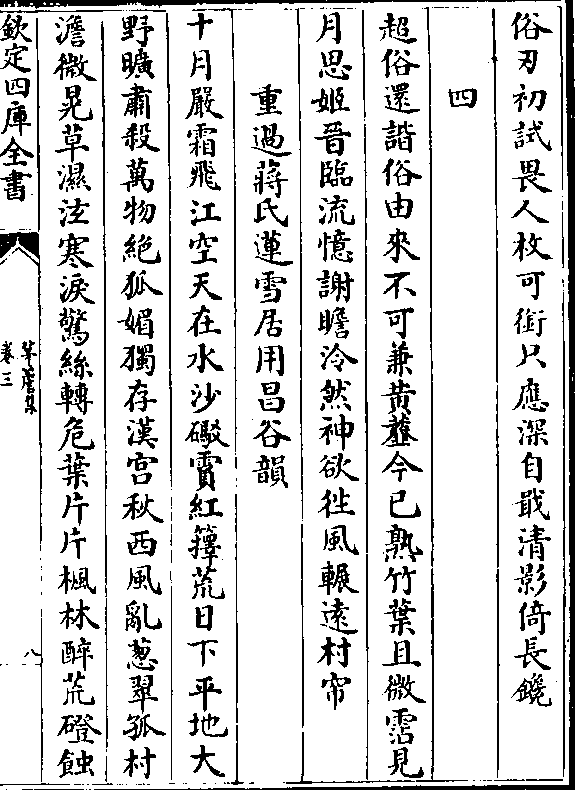 俗刃初試畏人枚可銜只應深自戢清影倚長鑱
四
超俗還諧俗由來不可兼黃虀今已熟竹葉且微霑見
月思姬晉臨流憶謝瞻泠然神欲徃風輾遠村帘
重過蔣氏蓮雪居用昌谷韻
十月嚴霜飛江空天在水沙礮賈紅籜荒日下平地大
野曠肅殺萬物絶狐媚獨存漢宮秋西風亂蔥翠孤村
澹微晃草濕泫寒淚驚絲轉危葉片片楓林醉荒磴蝕
欽定四庫全書
卷三
八